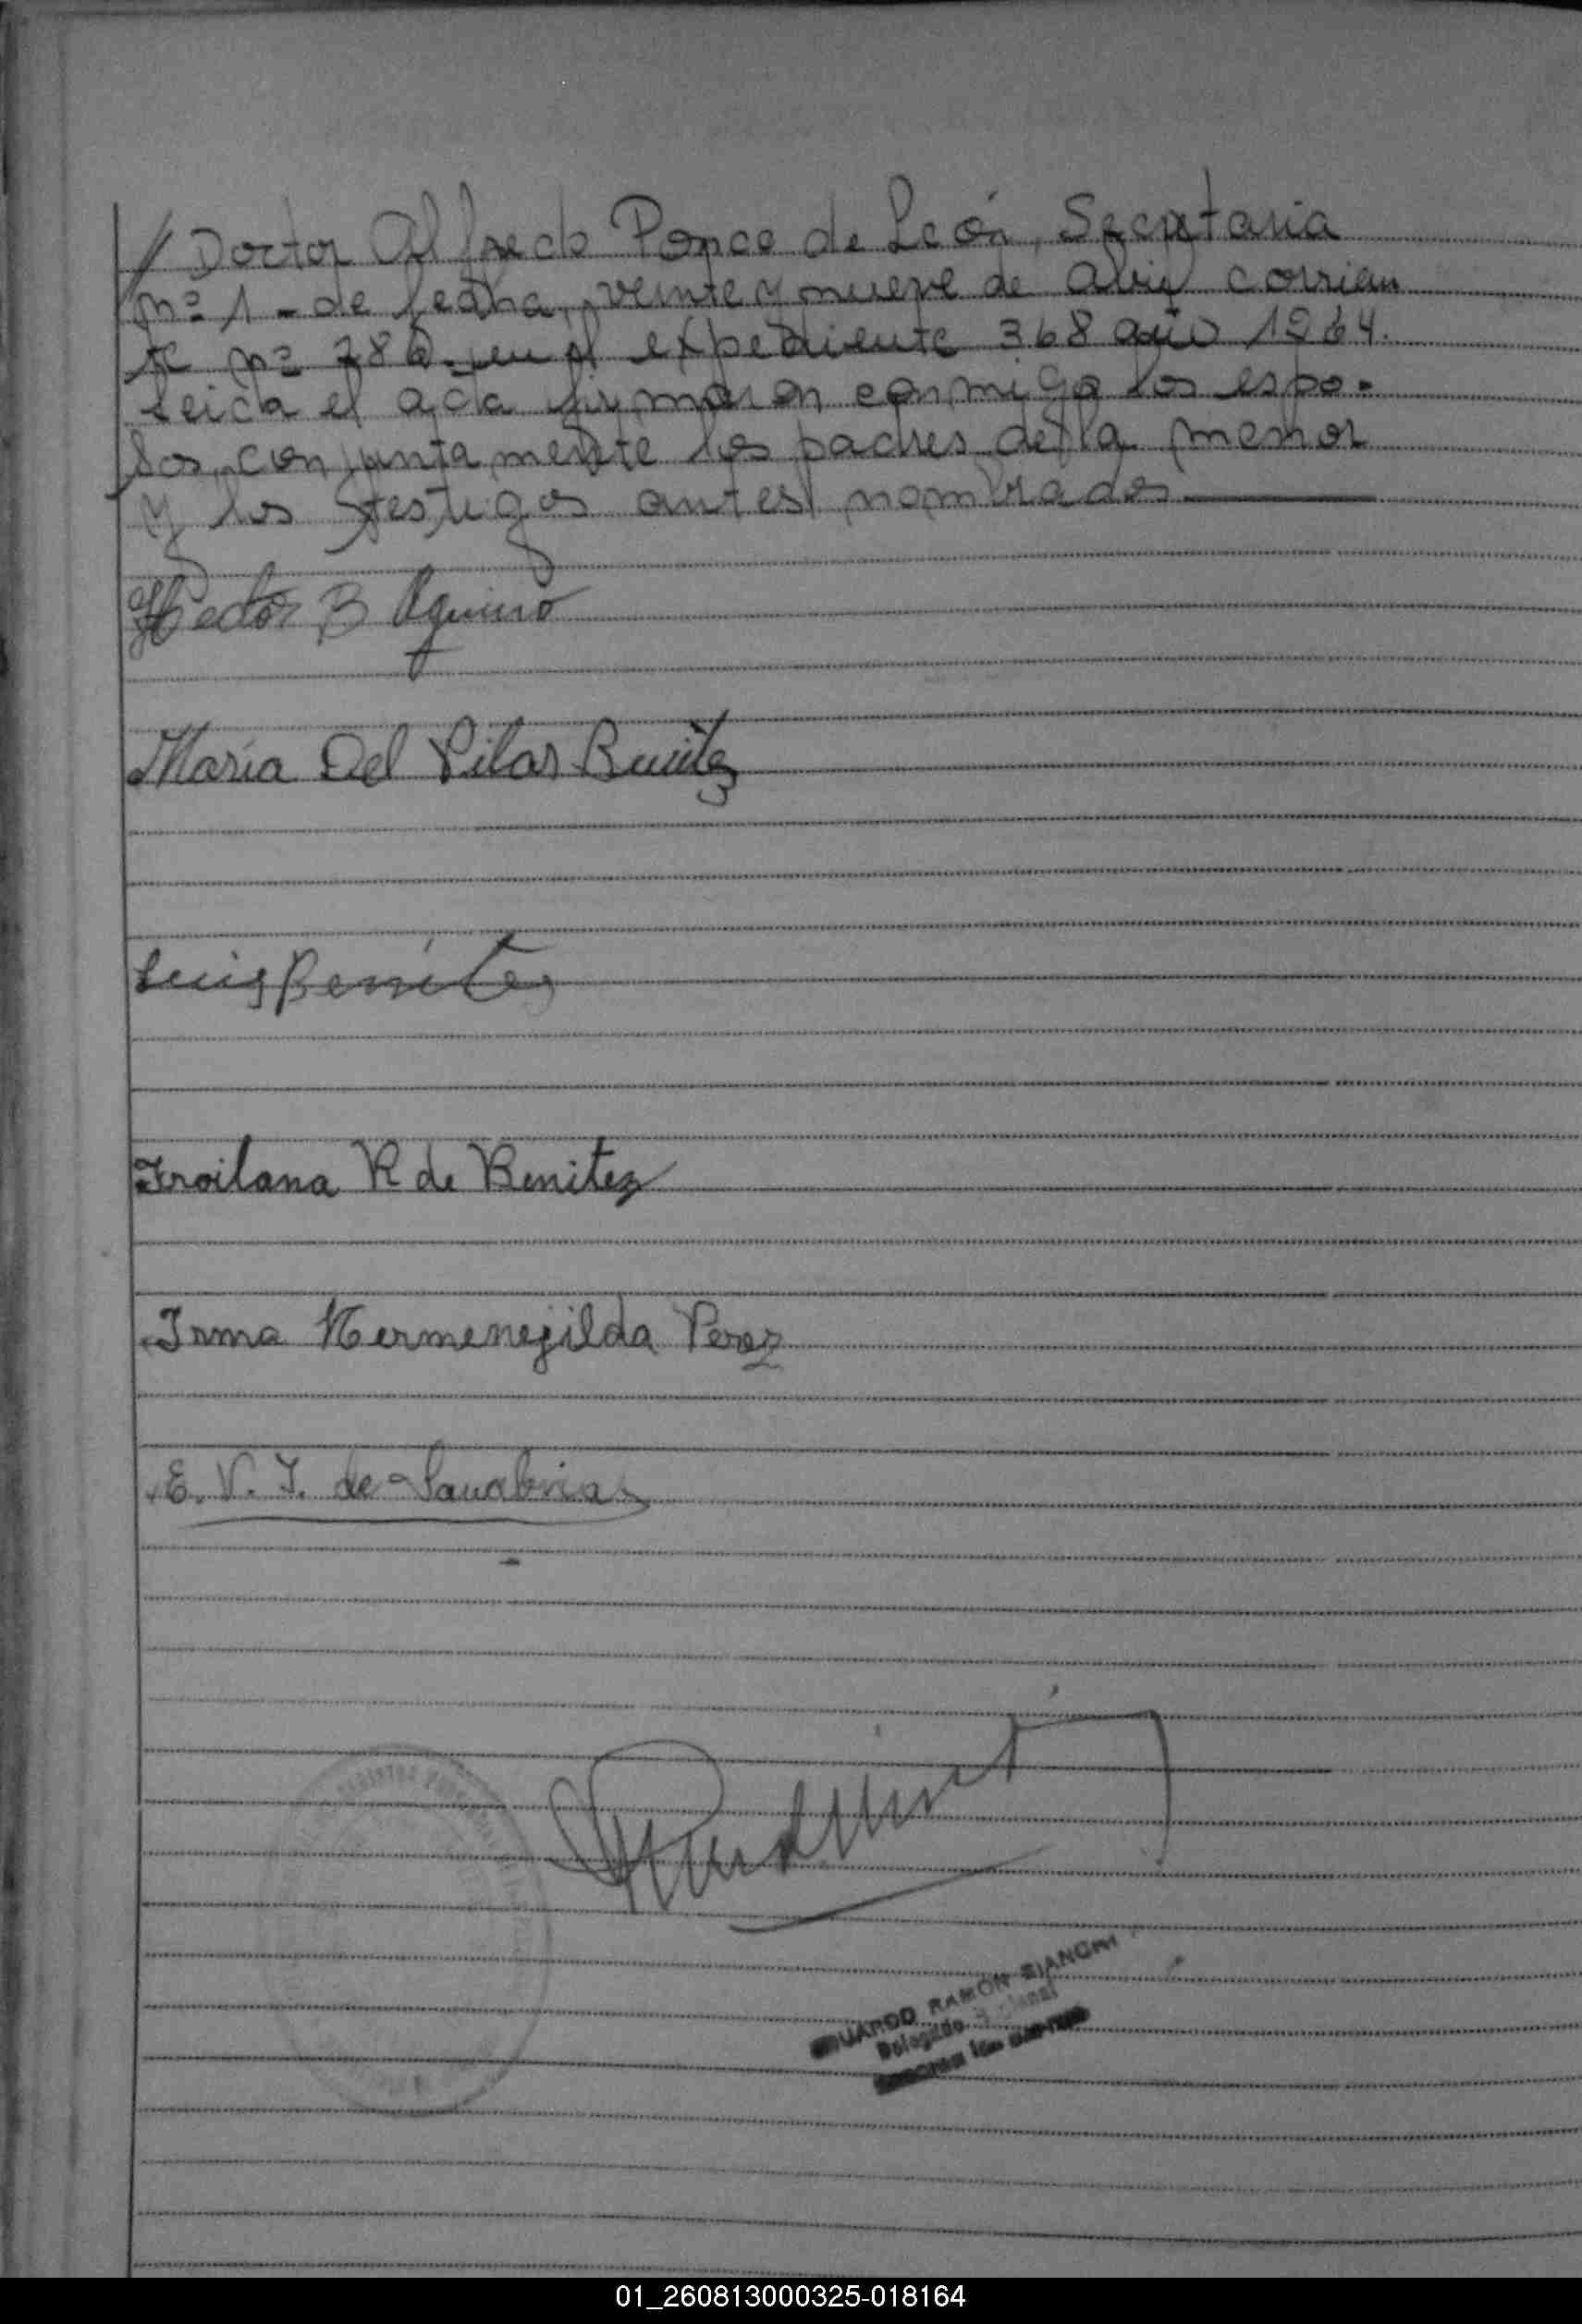 // Doctor Alfredo Ponce de León, Secretaria
nº 1 - de fecha, veinte y nueve de abril corrien
te nº 780. en el expediente 368 año 1964.
Leida el acta firmaron conmigo los espo-
sos, conjuntamente los padres de la menor
y los testigos antes nombrados
Hector B Aquino
María Del Pilar Benitez
Luis Benítez
Froilana R de Benitez
Irma Hermenejilda Perez
E. V. I. de Sanabria
REGISTRO
EDUARDO RAMÓN BIANCHI
Delegado
01_260813000325-018164